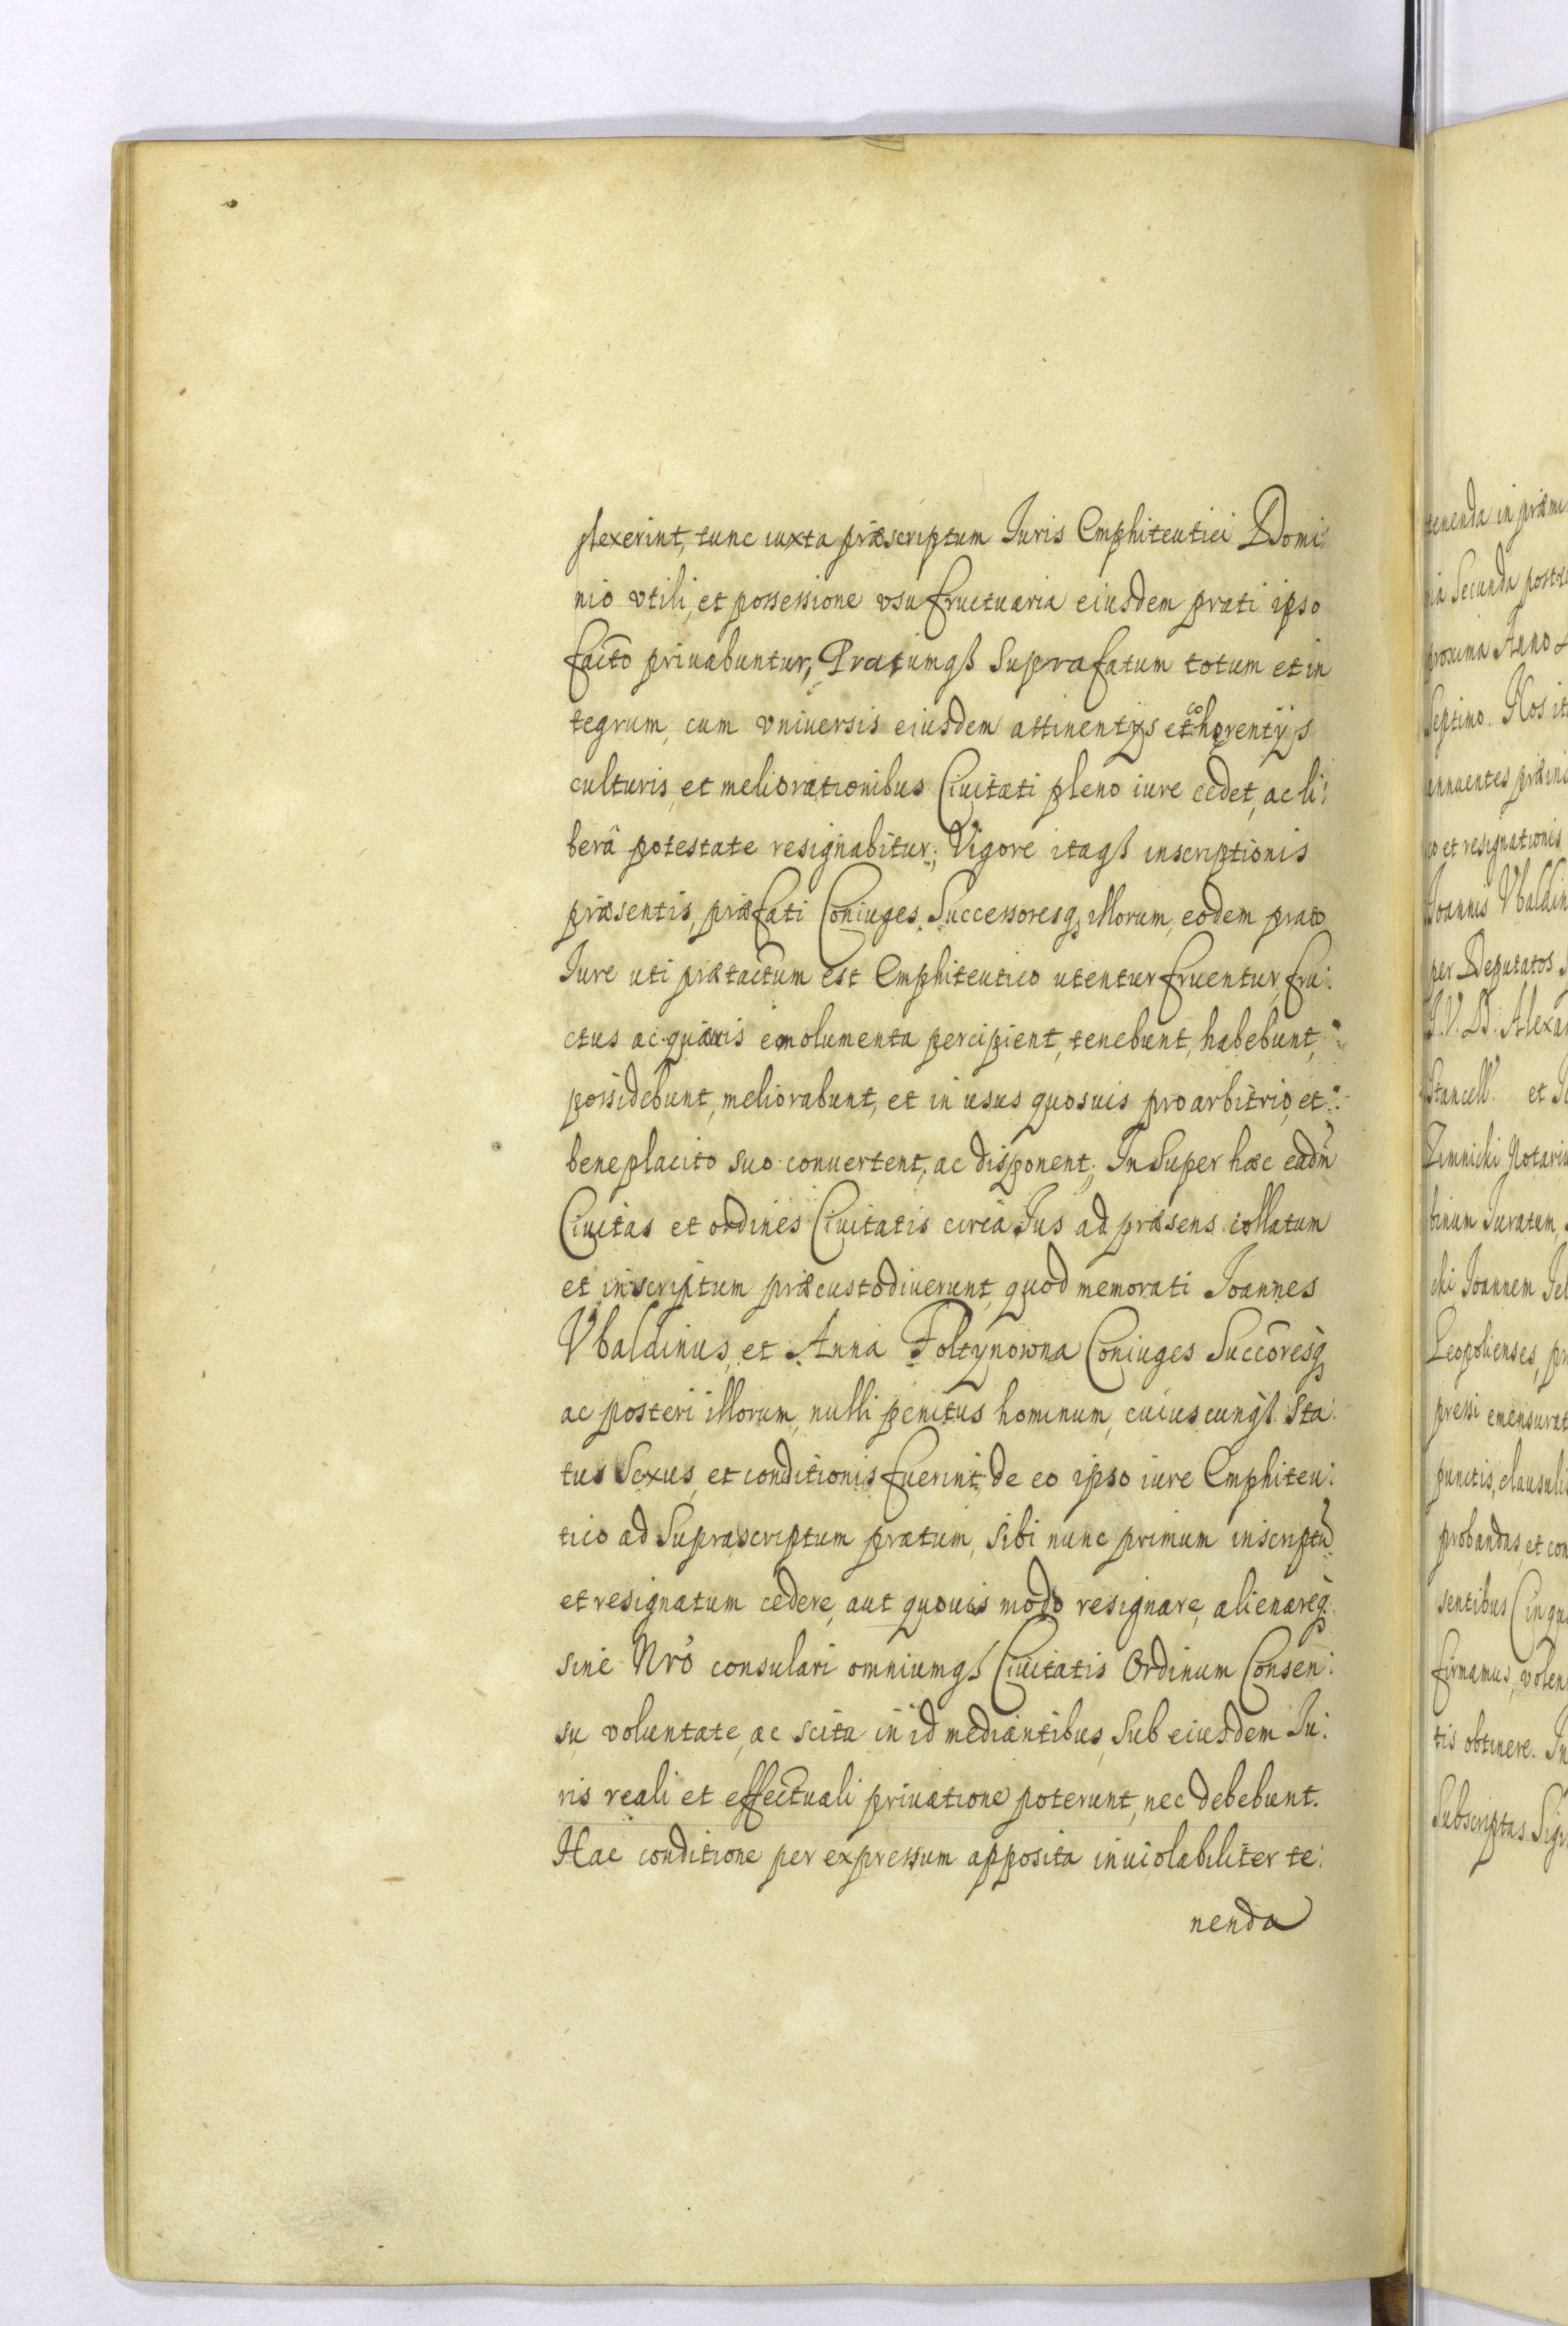 plexerint, tunc iuxta præscriptum Iuris Emphiteutici Domi:
nio vtili, et possessione vsufructuaria eiusdem prati ipso
facto priuabuntur, Pratumqß suprafatum totum et in
tegrum, cum vniuersis eiusdem attinentijs et cohęrentijs
culturis, et meliorationibus Ciuitati pleno iure cedet, ac li:
berâ potestate resignabitur; Vigore itaqß inscriptionis
præsentis, præfati Coniuges, Successoresq illorum, eodem prato
Iure uti prætactum est Emphiteutico utentur fruentur, fru:
ctus ac quævis emolumenta percipient, tenebunt, habebunt,
possidebunt, meliorabunt, et in usus quosuis pro arbitrio, et
beneplacito suo conuertent, ac disponent; In Super hæc eadm̃
Ciuitas et ordines Ciuitatis circa Ius ad præsens collatum
et inscriptum præcustodiuerunt, quod memorati Ioannes
Vbaldinus, et Anna Foltynowna Coniuges Succõresq
ac posteri illorum, nulli penitus hominum, cuiuscunqß Sta:
tus Sexus, et conditionis fuerint, de eo ipso iure Emphiteu:
tico ad Suprascriptum pratum, Sibi nunc primum inscriptũ
et resignatum cedere, aut quouis modo resignare, alienareq
sine Nrõ consulari omniumqß Ciuitatis Ordinum Consen:
su voluntate, ac scitu in id mediantibus, Sub eiusdem Iu:
ris reali et effectuali priuatione poterunt, nec debebunt.
Hac conditione per expressum apposita inuiolabiliter te:
nenda
tenenda in præmi
ia Secunda post
proxima Anno
Septimo. Nos it
annuentes præins
co et resignationis
Ioannis Vbaldin
per Deputatos
I.V.D. Alexan
Stancell. et Jo
Zimnicki Notariu
binum Iuratum,
cki Ioannem
Leopolienses, pr
pressi emensurat
punctis, clausulis
probandas, et con
sentibus
firmamus, volen
tis obtinere. In
Subscriptas Sig